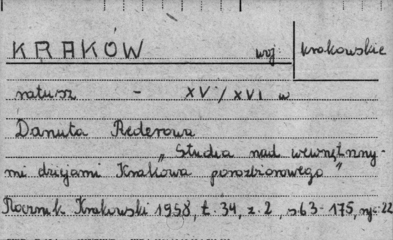 KRAKÓW woj. krakowskie
ratusz - XV/XVI w
Danuta Rederowa
„Studia nad wewnętrzny-
mi dziejami Krakowa porozbiorowego"
Rocznik Krakowski 1958, t. 34, z. 2, s. 63-175, ryc. 22